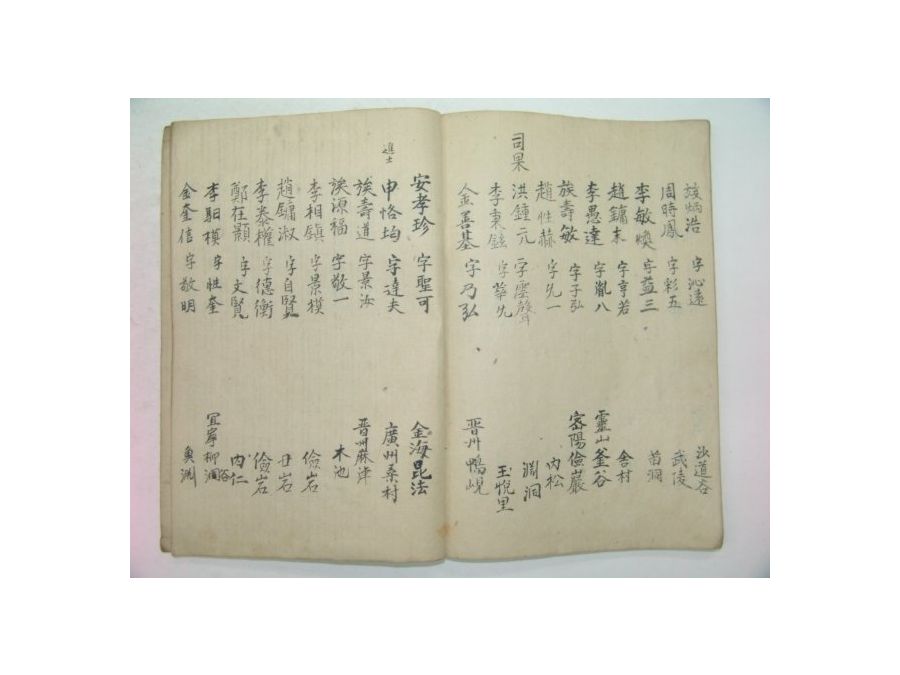 族炳浩 字沁遠 沙道谷
周時鳳 字彩五 武陵
李敏煥 字益三 茹洞
趙鏞 字亨若 舍村
李愚達 字胤八 靈山釜谷
族壽敏 字子弘 密陽儉巖
趙性赫 字先一 內松
司果 洪鍾元 字聲 澗洞
李秉鉉 字華先 玉悅里
金善基 字乃弘 晋州鴨峴
安孝珍 字聖可 金海昆法
進士 申恪均 字達夫 廣州桑村
族壽道 字景汝 晋州麻津
族源福 字敬一 木池
李相鎮 字景模 儉岩
趙鏞淑 字自賢 丑岩
李泰權 字德衡 儉岩
鄭在顥 字文賢 內仁
李馹模 字性奎 宜寧柳洞谷
金奎信 字敬明 魚淵